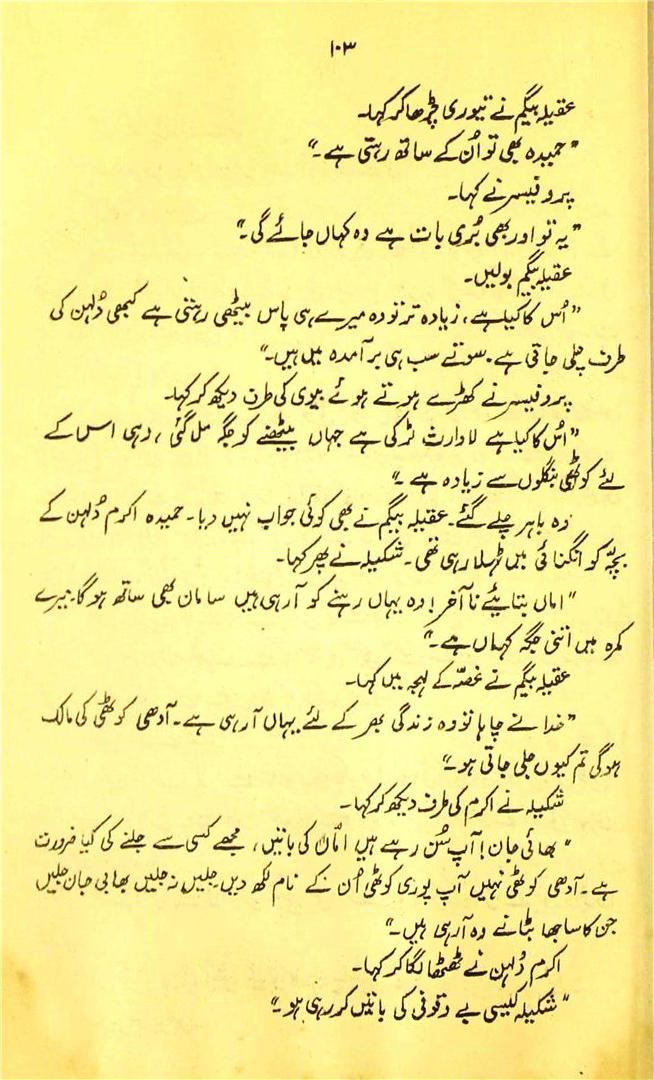 ۱۰۳
عقیلہ بیگم نے تیوری چڑھا کر کہا۔
"حمیدہ بھی تو اُن کے ساتھ رہتی ہے۔"
پروفیسر نے کہا۔
"یہ تو اور بھی بُری بات ہے وہ کہاں جائے گی۔"
عقیلہ بیگم بولیں۔
"اُس کا کیا ہے، زیادہ تر تو وہ میرے ہی پاس بیٹھی رہتی ہے کبھی دُلہن کی
طرف چلی جاتی ہے۔ سوتے سب ہی برآمدہ میں ہیں۔"
پروفیسر نے کھڑے ہوتے ہوئے بیوی کی طرف دیکھ کر کہا۔
"اُس کا کیا ہے لاوارث لڑکی ہے جہاں بیٹھنے کو جگہ مل گئی، وہی اس کے
لئے کوٹھی بنگلوں سے زیادہ ہے۔"
وہ باہر چلے گئے۔ عقیلہ بیگم نے بھی کوئی جواب نہیں دیا۔ حمیدہ اکرم دُلہن کے
بچّہ کو انگنائی میں ٹہلا رہی تھی۔ شکیلہ نے پھر کہا۔
"اماں بتایئے نا آخر! وہ یہاں رہنے کو آرہی ہیں سامان بھی ساتھ ہوگا۔ میرے
کمرہ میں اتنی جگہ کہاں ہے۔"
عقیلہ بیگم نے غصّہ کے لہجہ میں کہا۔
"خدا نے چاہا تو وہ زندگی بھر کے لئے یہاں آرہی ہے۔ آدھی کوٹھی کی مالک
ہوگی تم کیوں جلی جاتی ہو۔"
شکیلہ نے اکرم کی طرف دیکھ کر کہا۔
"بھائی جان! آپ سُن رہے ہیں امّاں کی باتیں، مجھے کسی سے جلنے کی کیا ضرورت
ہے۔ آدھی کوٹھی نہیں آپ پوری کوٹھی اُن کے نام لکھ دیں۔ جلیں نہ جلیں بھابی جان جلیں
جن کا ساجھا بٹانے وہ آرہی ہیں۔"
اکرم دُلہن نے ٹھٹھا لگا کر کہا۔
"شکیلہ کیسی بے وقوفی کی باتیں کر رہی ہو۔"